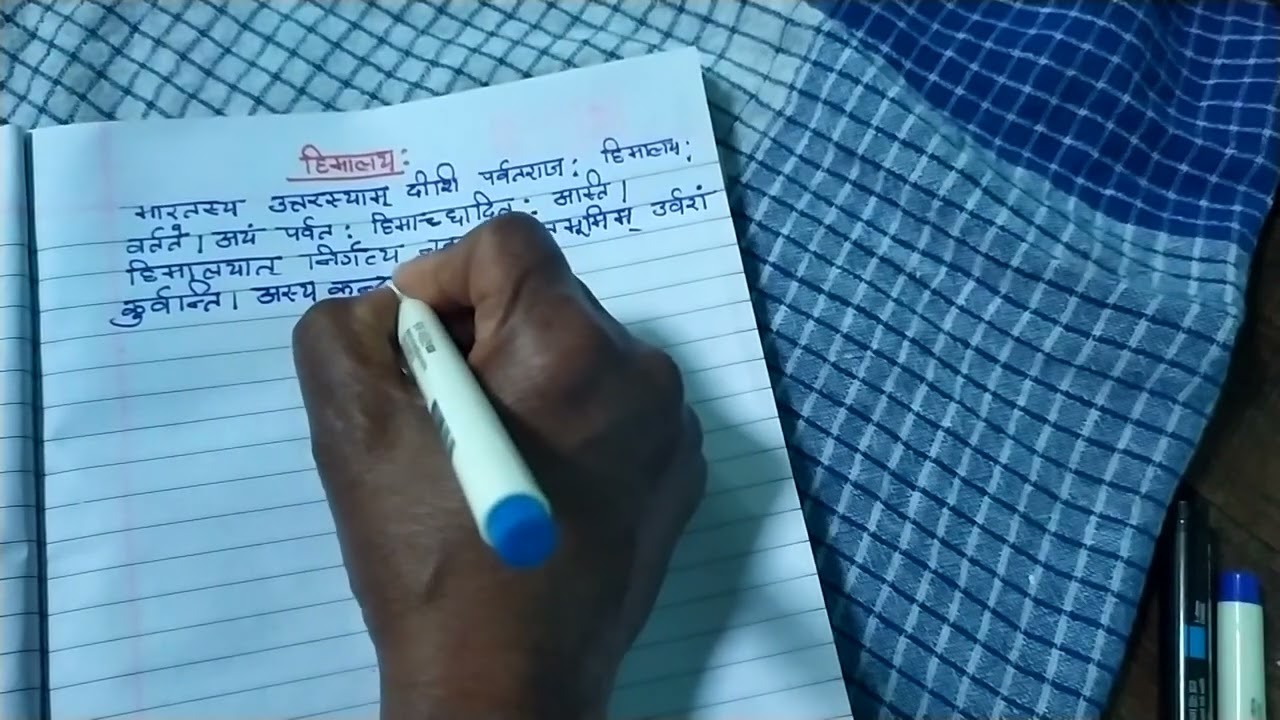 हिमालयः
भारतस्य उत्तरस्याम् दीशि पर्वतराजः हिमालयः
वर्तते। अयं पर्वतः हिमाच्छादितः अस्ति।
हिमालयात् निर्गत्य भूमिम् उर्वरां
कुर्वान्ति। अस्य